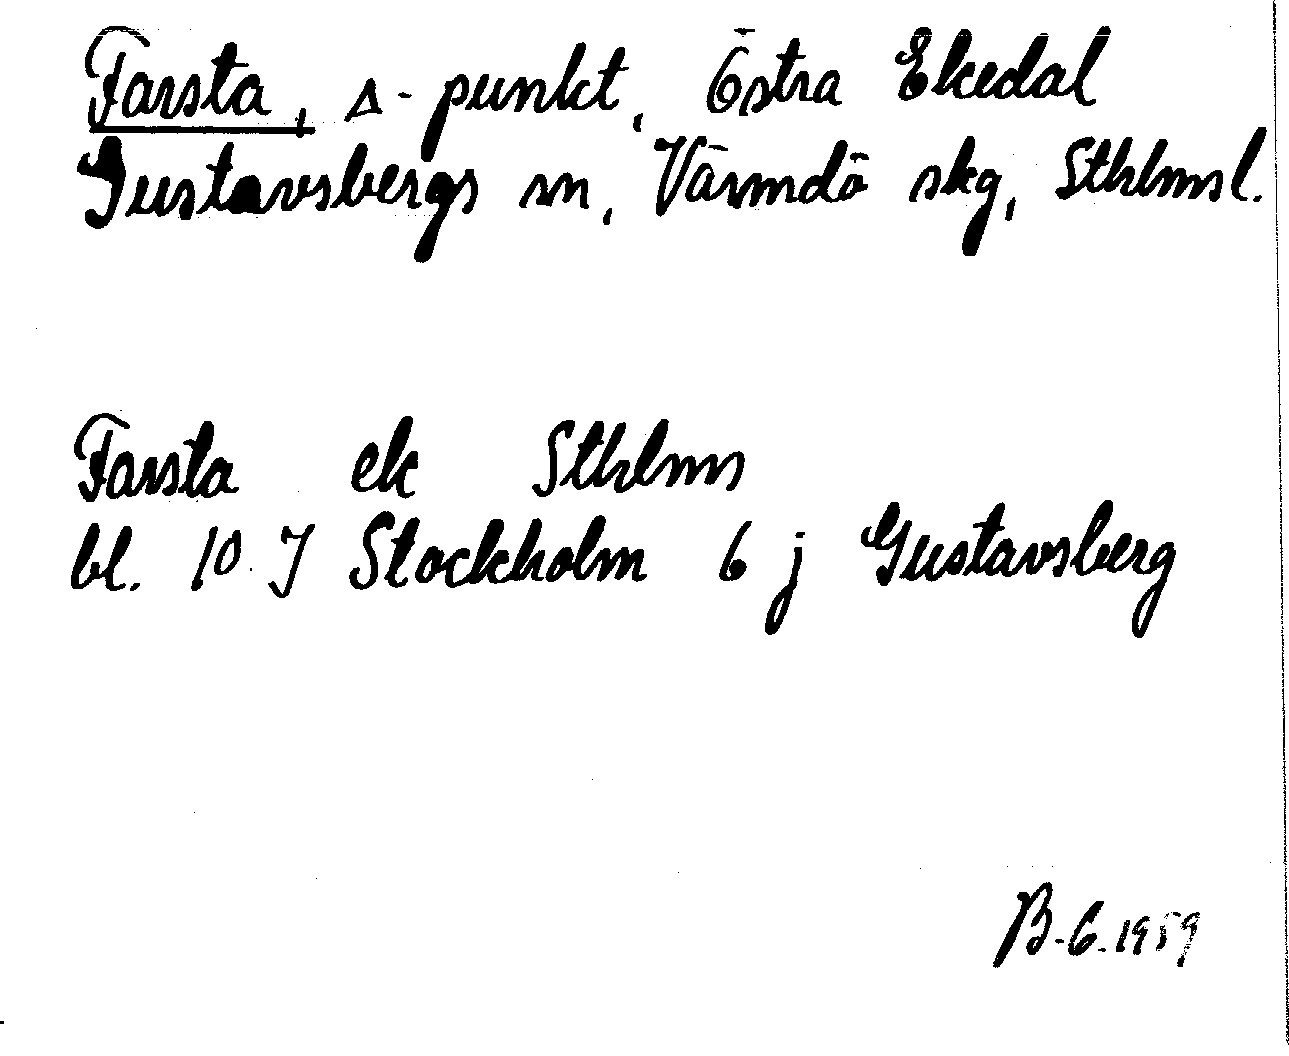 Farsta, Δ-punkt, Östra Ekedal
Gustavsbergs sn, Värmdö skg, Sthlmsl.
Farsta ek Sthlms
bl. 10 J Stockholm 6 j Gustavsberg
B-G. 1959